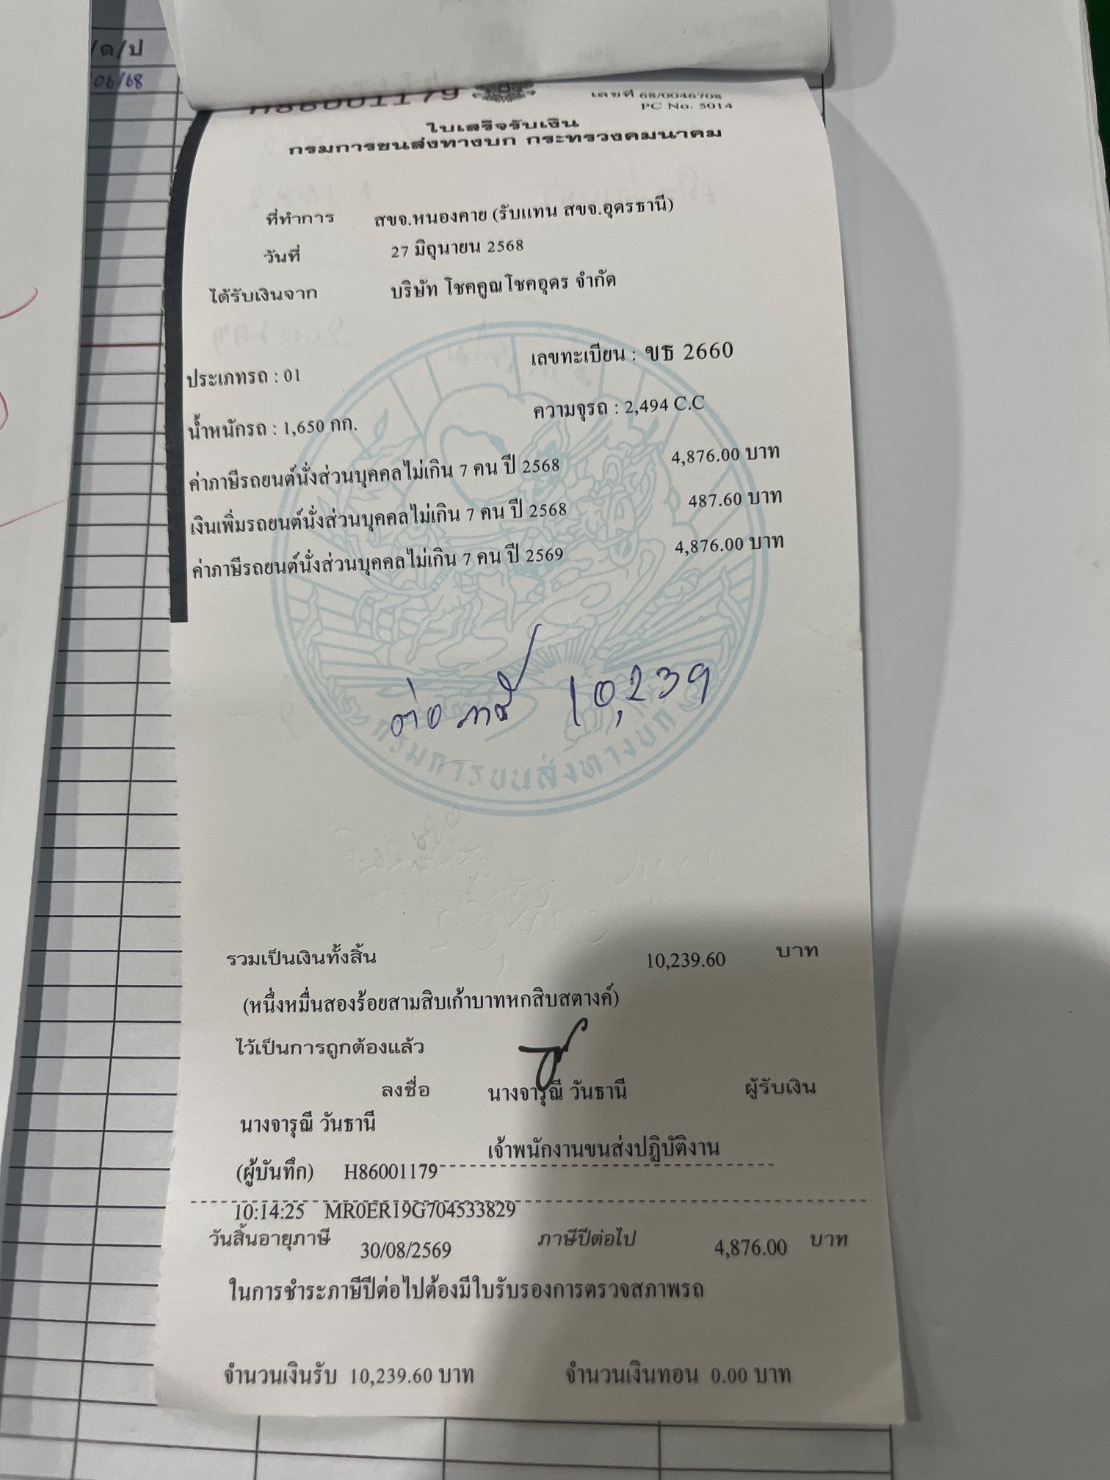 /ด/ป
06/68
H86001179
เลขที่ 68/0046708
PC No. 5014
ใบเสร็จรับเงิน
กรมการขนส่งทางบก กระทรวงคมนาคม
ที่ทำการ สขจ.หนองคาย (รับแทน สขจ.อุดรธานี)
วันที่ 27 มิถุนายน 2568
ได้รับเงินจาก บริษัท โชคคูณโชคอุดร จำกัด
เลขทะเบียน : ขธ 2660
ประเภทรถ : 01
ความจุรถ : 2,494 C.C
น้ำหนักรถ : 1,650 กก.
ค่าภาษีรถยนต์นั่งส่วนบุคคลไม่เกิน 7 คน ปี 2568 4,876.00 บาท
เงินเพิ่มรถยนต์นั่งส่วนบุคคลไม่เกิน 7 คน ปี 2568 487.60 บาท
ค่าภาษีรถยนต์นั่งส่วนบุคคลไม่เกิน 7 คน ปี 2569 4,876.00 บาท
ต่อภาษี 10,239
กรมการขนส่งทางบก
รวมเป็นเงินทั้งสิ้น 10,239.60 บาท
(หนึ่งหมื่นสองร้อยสามสิบเก้าบาทหกสิบสตางค์)
ไว้เป็นการถูกต้องแล้ว
ลงชื่อ นางจารุณี วันธานี ผู้รับเงิน
นางจารุณี วันธานี
เจ้าพนักงานขนส่งปฏิบัติงาน
(ผู้บันทึก) H86001179
10:14:25 MR0ER19G704533829
วันสิ้นอายุภาษี 30/08/2569 ภาษีปีต่อไป 4,876.00 บาท
ในการชำระภาษีปีต่อไปต้องมีใบรับรองการตรวจสภาพรถ
จำนวนเงินรับ 10,239.60 บาท จำนวนเงินทอน 0.00 บาท